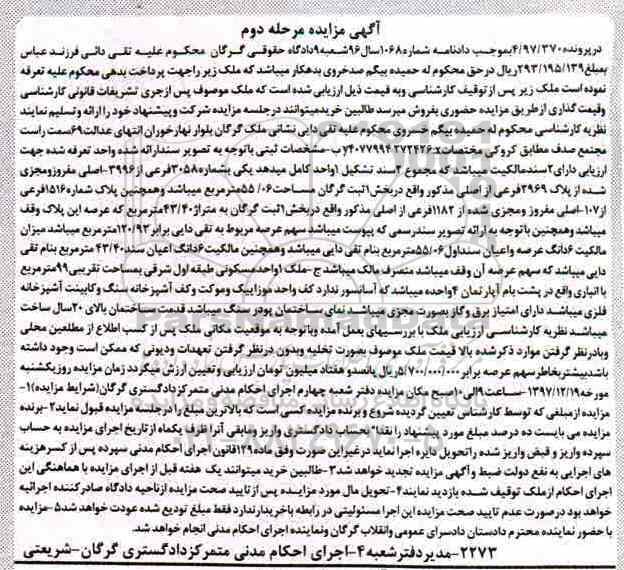 آگهی مزایده مرحله دوم
درپرونده۴/۹۷/۳۷۰بموجب دادنامه شماره۱۰۶۸سال۹۶شعبه۹دادگاه حقوقی گرگان محکوم علیه تقی دائی فرزند عباس
بمبلغ۲۹۳/۱۹۵/۱۳۹ریال درحق محکوم له حمیده بیگم صدخروی بدهکار میباشد که ملک زیر راجهت پرداخت بدهی محکوم علیه تعرفه
نموده است ملک زیر پس ازتوقیف کارشناسی وبه قیمت ذیل ارزیابی شده است که ملک موصوف پس ازجری تشریفات قانونی کارشناسی
وقیمت گذاری ازطریق مزایده حضوری بفروش میرسد طالبین خریدمیتوانند درجلسه مزایده شرکت وپیشنهاد خود را ارائه و تسلیم نمایند
نظریه کارشناسی محکوم له حمیده بیگم صدخروی محکوم علیه تقی دایی نشانی ملک گرگان بلوار نهارخوران انتهای عدالت۶۹سمت راست
مجتمع صدف مطابق کروکی مختصات ب-مشخصات ثبتی باتوجه به تصویر سندارائه شده واحد تعرفه شده جهت
ارزیابی دارای۲سندمالکیت میباشد که مجموع ۲سند تشکیل ۱واحد کامل میدهد یکی بشماره۳۰۵۸فرعی از۳۹۹۶-اصلی مفروزومجزی
شده از پلاک ۲۹۶۹فرعی از اصلی مذکور واقع دربخش۱ثبت گرگان مساحت۵۵/۰۶مترمربع میباشد وهمچنین پلاک شماره۱۵۱۶فرعی
از۱۰۷-اصلی مفروز ومجزی شده از ۱۱۸۲فرعی از اصلی مذکور واقع دربخش۱ثبت گرگان به متراژ۴۳/۴۰مترمربع که عرصه این پلاک وقف
میباشد وهمچنین باتوجه به ارائه تصویر سندرسمی که پیوست میباشد سهم عرصه مربوط به تقی دایی برابر۱۲۰/۹۲مترمربع میباشد میزان
مالکیت ۶دانگ عرصه واعیان سنداول۵۵/۰۶مترمربع بنام تقی دایی میباشد وهمچنین مالکیت۶دانگ اعیان سند۴۳/۴۰ مترمربع بنام تقی
دایی میباشد که سهم عرصه آن وقف میباشد متصرف مالک میباشد ج -ملک ۱واحدمسکونی طبقه اول شرقی بمساحت تقریبی۹۹مترمربع
با انباری واقع در پشت بام آپارتمان ۴واحده میباشد که آسانسور ندارد کف واحد موزاییک وموکت وکف آشپزخانه سنگ وکابینت آشپزخانه
فلزی میباشد دارای امتیاز برق وگاز بصورت مجزی میباشد نمای ساختمان پودر سنگ میباشد قدمت ساختمان بالای ۲۰سال ساخت
میباشد نظریه کارشناسی ارزیابی ملک با بررسیهای بعمل آمده وباتوجه به موقعیت مکانی ملک پس از کسب اطلاع از مطلعین محلی
وبادرنظر گرفتن موارد ذکرشده بالا قیمت ملک موصوف بصورت تخلیه وبدون درنظر گرفتن تعهدات ودیونی که ممکن است وجود داشته
باشدبیشتربخاطرسهم عرصه برابر ۵/۷۰۰/۰۰۰/۰۰۰ریال پانصدو هفتاد میلیون تومان ارزیابی و تعیین ارزش میگردد زمان مزایده روزیکشنبه
مورخه۱۳۹۷/۱۲/۱۹-ساعت۹الی۱۰صبح مکان مزایده دفتر شعبه چهارم اجرای احکام مدنی متمرکزدادگستری گرگان(شرایط مزایده)۱-
مزایده ازمبلغی که توسط کارشناس تعیین گردیده شروع و برنده مزایده کسی است که بالاترین مبلغ را درجلسه مزایده قبول نماید۲-برنده
مزایده می بایست ده درصد مبلغ مورد پیشنهاد را نقدا" به حساب دادگستری واریز ومابقی آنرا ظرف یکماه ازتاریخ اجرای مزایده به حساب
سپرده واریز و قبض واریز شده راتحویل دایره اجرا نماید درغیراین صورت وفق ماده۱۲۹قانون اجرای احکام مدنی سپرده پس از کسرهزینه
های اجرایی به نفع دولت ضبط و آگهی مزایده تجدید خواهد شد۳-طالبین خرید میتوانند یک هفته قبل از اجرای مزایده با هماهنگی این
اجرای احکام ازملک توقیف شده بازدید نمایند۴-تحویل مال مورد مزایده پس ازتایید صحت مزایده ازناحیه دادگاه صادرکننده اجرائیه
خواهد بود درصورت عدم تایید صحت مزایده این اجرا مسئولیتی در رابطه باخریدارندارد فقط مبلغ تودیع شده عودت خواهد شد۵-مزایده
با حضور نماینده محترم دادستان دادسرای عمومی وانقلاب گرگان ونماینده اجرای احکام مدنی انجام خواهد شد.
۲۲۷۳-مدیردفترشعبه۴-اجرای احکام مدنی متمرکزدادگستری گرگان-شریعتی